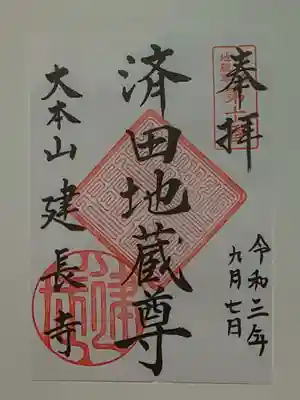 奉拝
済田地蔵尊
大本山 建長寺
令和三年
九月七日